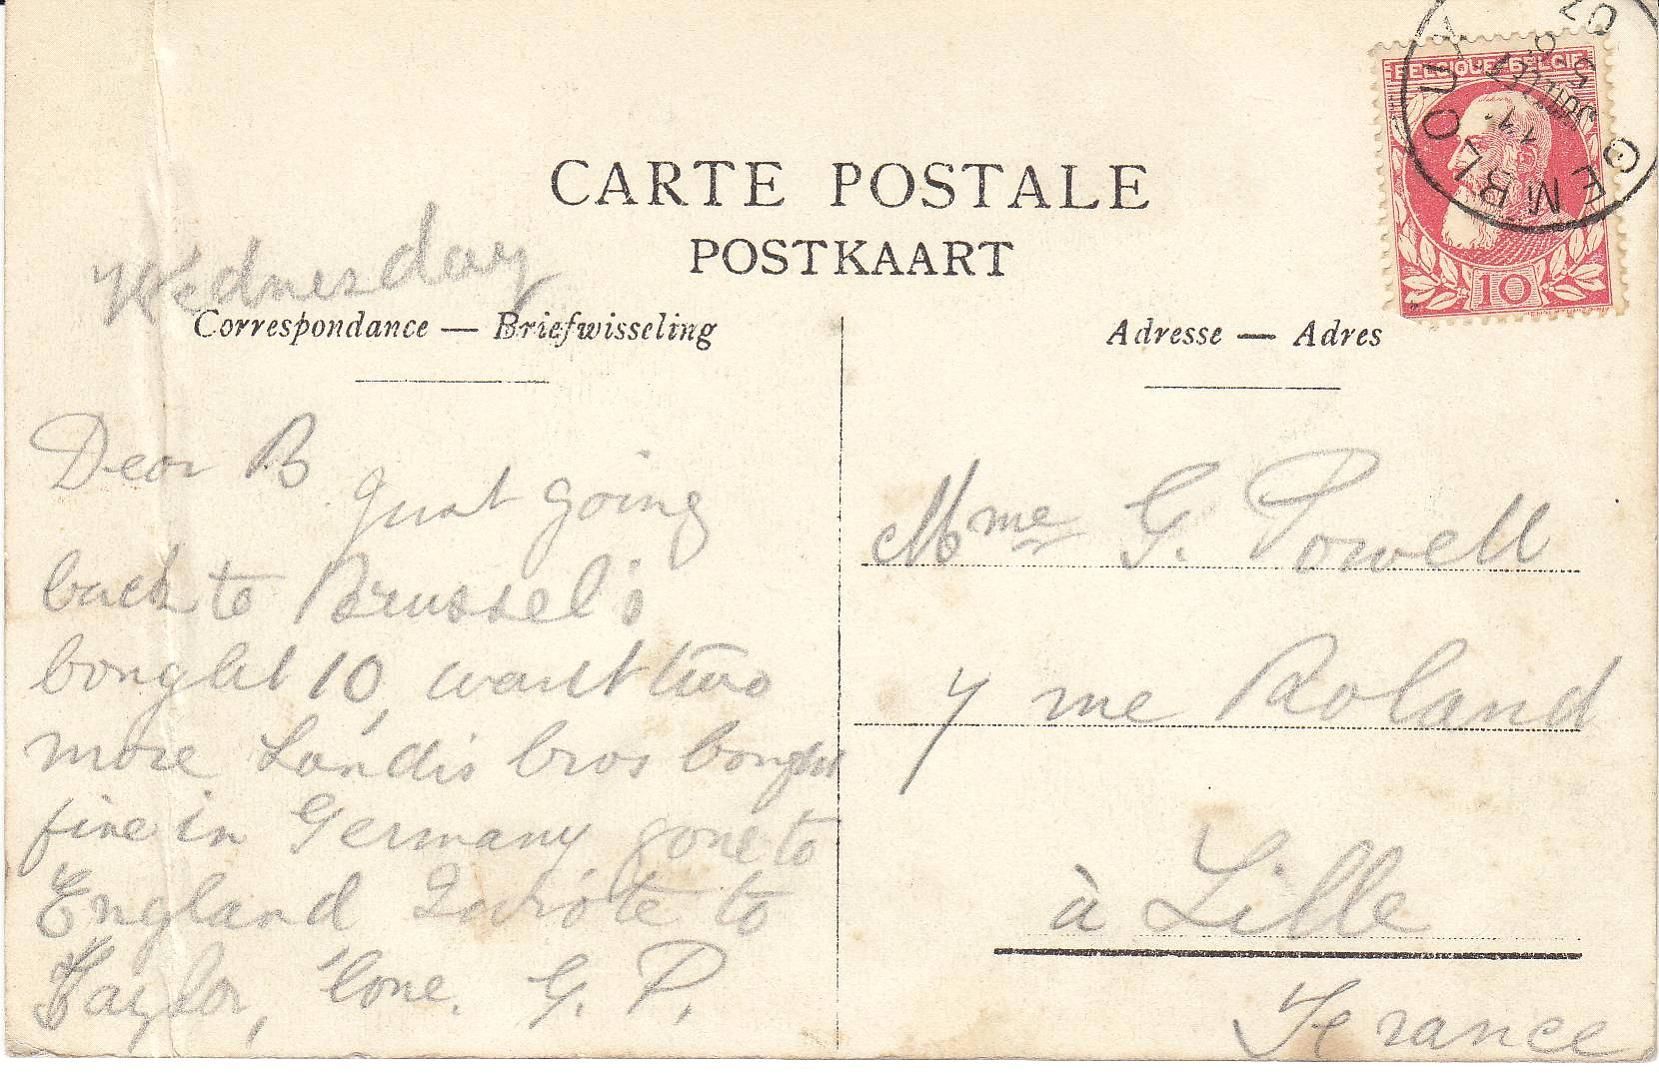 CARTE POSTALE
POSTKAART
Wednesday
Correspondance — Briefwisseling
Dear B
Just going
back to Brussel's
bought 10, want two
more Landis bros bought
fine in Germany gone to
England I wrote to
Taylor, love. G. P.
BELGIQUE BELGIE
10
GEMBLOUX
11
JUILLET
07
Adresse — Adres
Mme G. Powell
7 me Roland
à Lille
France